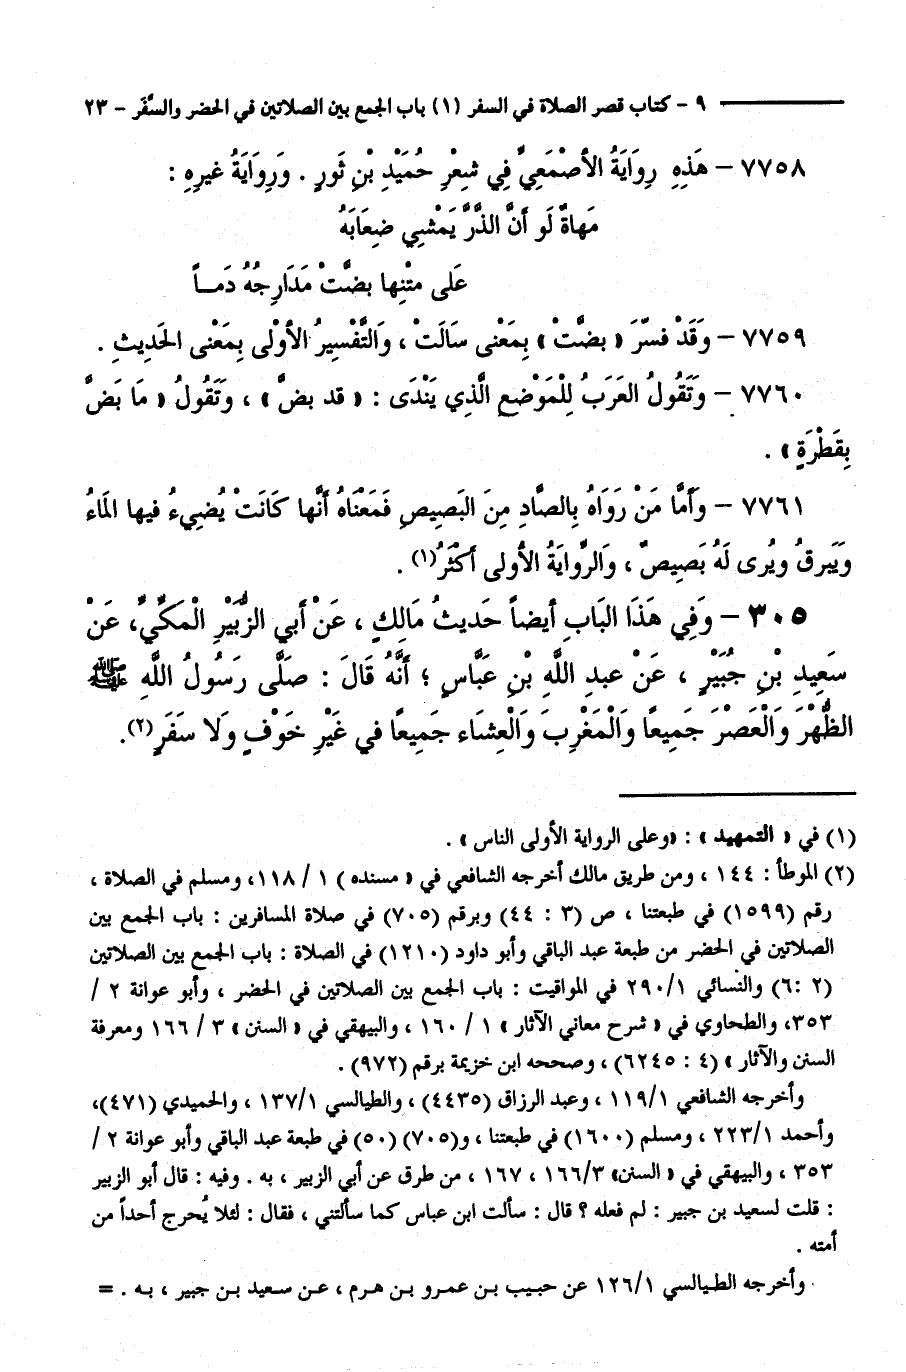 ٩ - كتاب قصر الصلاة في السفر (١) باب الجمع بين الصلاتين في الحضر والسَّفَر - ٢٣
٧٧٥٨ - هَذِهِ رِوَايَةُ الأَصْمَعِيِّ فِي شِعْرِ حُمَيْدِ بْنِ ثَورٍ . وَرِوَايَةُ غيرِهِ :
مَهاةٌ لَو أَنَّ الذَّرَّ يَمْشِي ضِعَابَهُ
عَلى متْنِها بضَّتْ مَدَارِجُهُ دَمـاً
٧٧٥٩ - وَقَدْ فسِّرَ « بضَّتْ » بِمَعْنى سَالَتْ ، وَالتَّفْسِيرُ الأَوْلى بِمَعْنى الحَدِيثِ .
٧٧٦٠ - وَتَقُولُ العَرَبُ لِلْمَوْضعِ الَّذِي يَنْدَى : « قد بضَّ » ، وَتَقُولُ « مَا بَضَّ
بِقَطْرَةٍ » .
٧٧٦١ - وَأَمَّا مَنْ رَوَاهُ بِالصَّادِ مِنَ البَصِيصِ فَمَعْنَاهُ أَنَّها كَانَتْ يُضِيءُ فيها المَاءُ
وَيَبرقُ ويُرى لَهُ بَصِيصٌ ، وَالرِّوَايَةُ الأُولى أَكْثَرُ(١) .
٣٠٥ - وَفِي هَذَا البَابِ أيضاً حَديثُ مَالِكٍ ، عَنْ أَبي الزُّبَيْرِ الْمَكِّيِّ، عَنْ
سَعِيدِ بْنِ جُبَيْرٍ ، عَنْ عبدِ اللَّهِ بْنِ عَبَّاسٍ ؛ أَنَّهُ قَالَ : صَلَّى رَسُولُ اللَّهِ ﷺ
الظُّهْرَ وَالْعَصْرَ جَمِيعًا وَالْمَغْرِبَ وَالْعِشَاء جَمِيعًا في غَيْرِ خَوْفٍ وَلا سَفَرٍ(٢).
(١) في « التمهيد » : «وعلى الرواية الأولى الناس» .
(٢) الموطأ : ١٤٤ ، ومن طريق مالك أخرجه الشافعي في « مسنده ) ١ / ١١٨، ومسلم في الصلاة ،
رقم (١٥٩٩) في طبعتنا ، ص (٣ : ٤٤) وبرقم (٧٠٥) في صلاة المسافرين : باب الجمع بين
الصلاتين في الحضر من طبعة عبد الباقي وأبو داود (١٢١٠) في الصلاة : باب الجمع بين الصلاتين
(٢ :٦) والنسائي ٢٩٠/١ في المواقيت : باب الجمع بين الصلاتين في الحضر ، وأبو عوانة ٢ /
٣٥٣، والطحاوي في « شرح معاني الآثار » ١ / ١٦٠ ، والبيهقي في « السنن» ٣ / ١٦٦ ومعرفة
السنن والآثار » (٤ : ٦٢٤٥) ، وصححه ابن خزيمة برقم (٩٧٢) .
وأخرجه الشافعي ١١٩/١ ، وعبد الرزاق (٤٤٣٥) ، والطيالسي ١٣٧/١ ، والحميدي (٤٧١)،
وأحمد ٢٢٣/١ ، ومسلم (١٦٠٠) في طبعتنا ، و(٧٠٥) (٥٠) في طبعة عبد الباقي وأبو عوانة ٢ /
٣٥٣ ، والبيهقي في « السنن» ١٦٦/٣ ، ١٦٧ ، من طرق عن أبي الزبير ، به . وفيه : قال أبو الزبير
: قلت لسعيد بن جبير : لم فعله ؟ قال : سألت ابن عباس كما سألتني ، فقال : لئلا يُحرج أحداً من
أمته .
وأخرجه الطيالسي ١٢٦/١ عن حبيب بن عمرو بن هرم ، عن سعيد بن جبير ، به . =